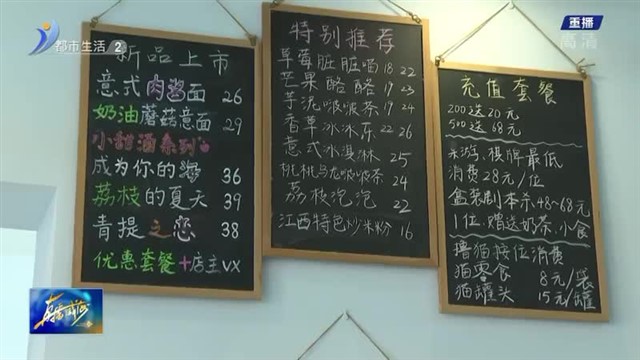 都市生活 2
重播
高清
新品上市
意式肉酱面 26
奶油蘑菇意面 29
小甜酒系列
成为你的海 36
荔枝的夏天 39
青提之恋 38
优惠套餐+店主VX
特别推荐
草莓脏脏 18 22
芒果酪酪 17 23
芋泥啵啵茶 19 24
香草冰冰乐 22 26
意式冰淇淋 25
桃桃乌龙啵啵茶 24
荔枝泡泡 22
江西特色炒米粉 16
充值套餐
200送20元
500送68元
桌游、棋牌最低
消费28元/位
盒装剧本杀48-68元
1位,赠送奶茶、小食
撸猫按位消费
猫零食 8元/袋
猫罐头 15元/罐